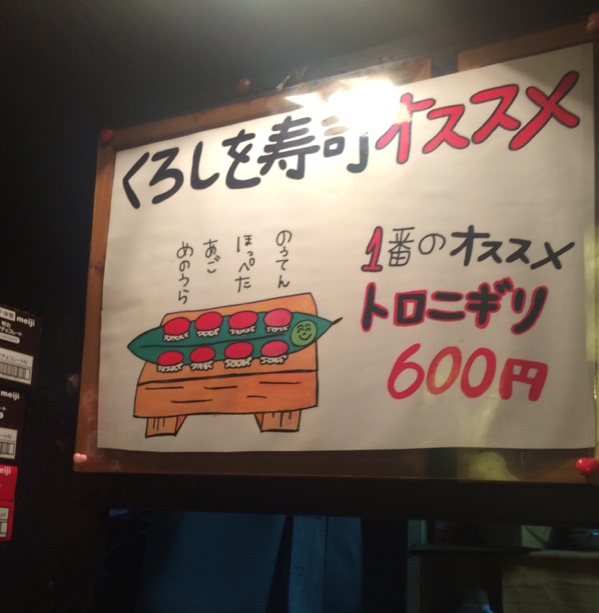 くろしを寿司オススメ
1番のオススメ
トロニギリ
600円
のうてん
ほっぺた
あご
めのうら
meiji
meiji
meiji